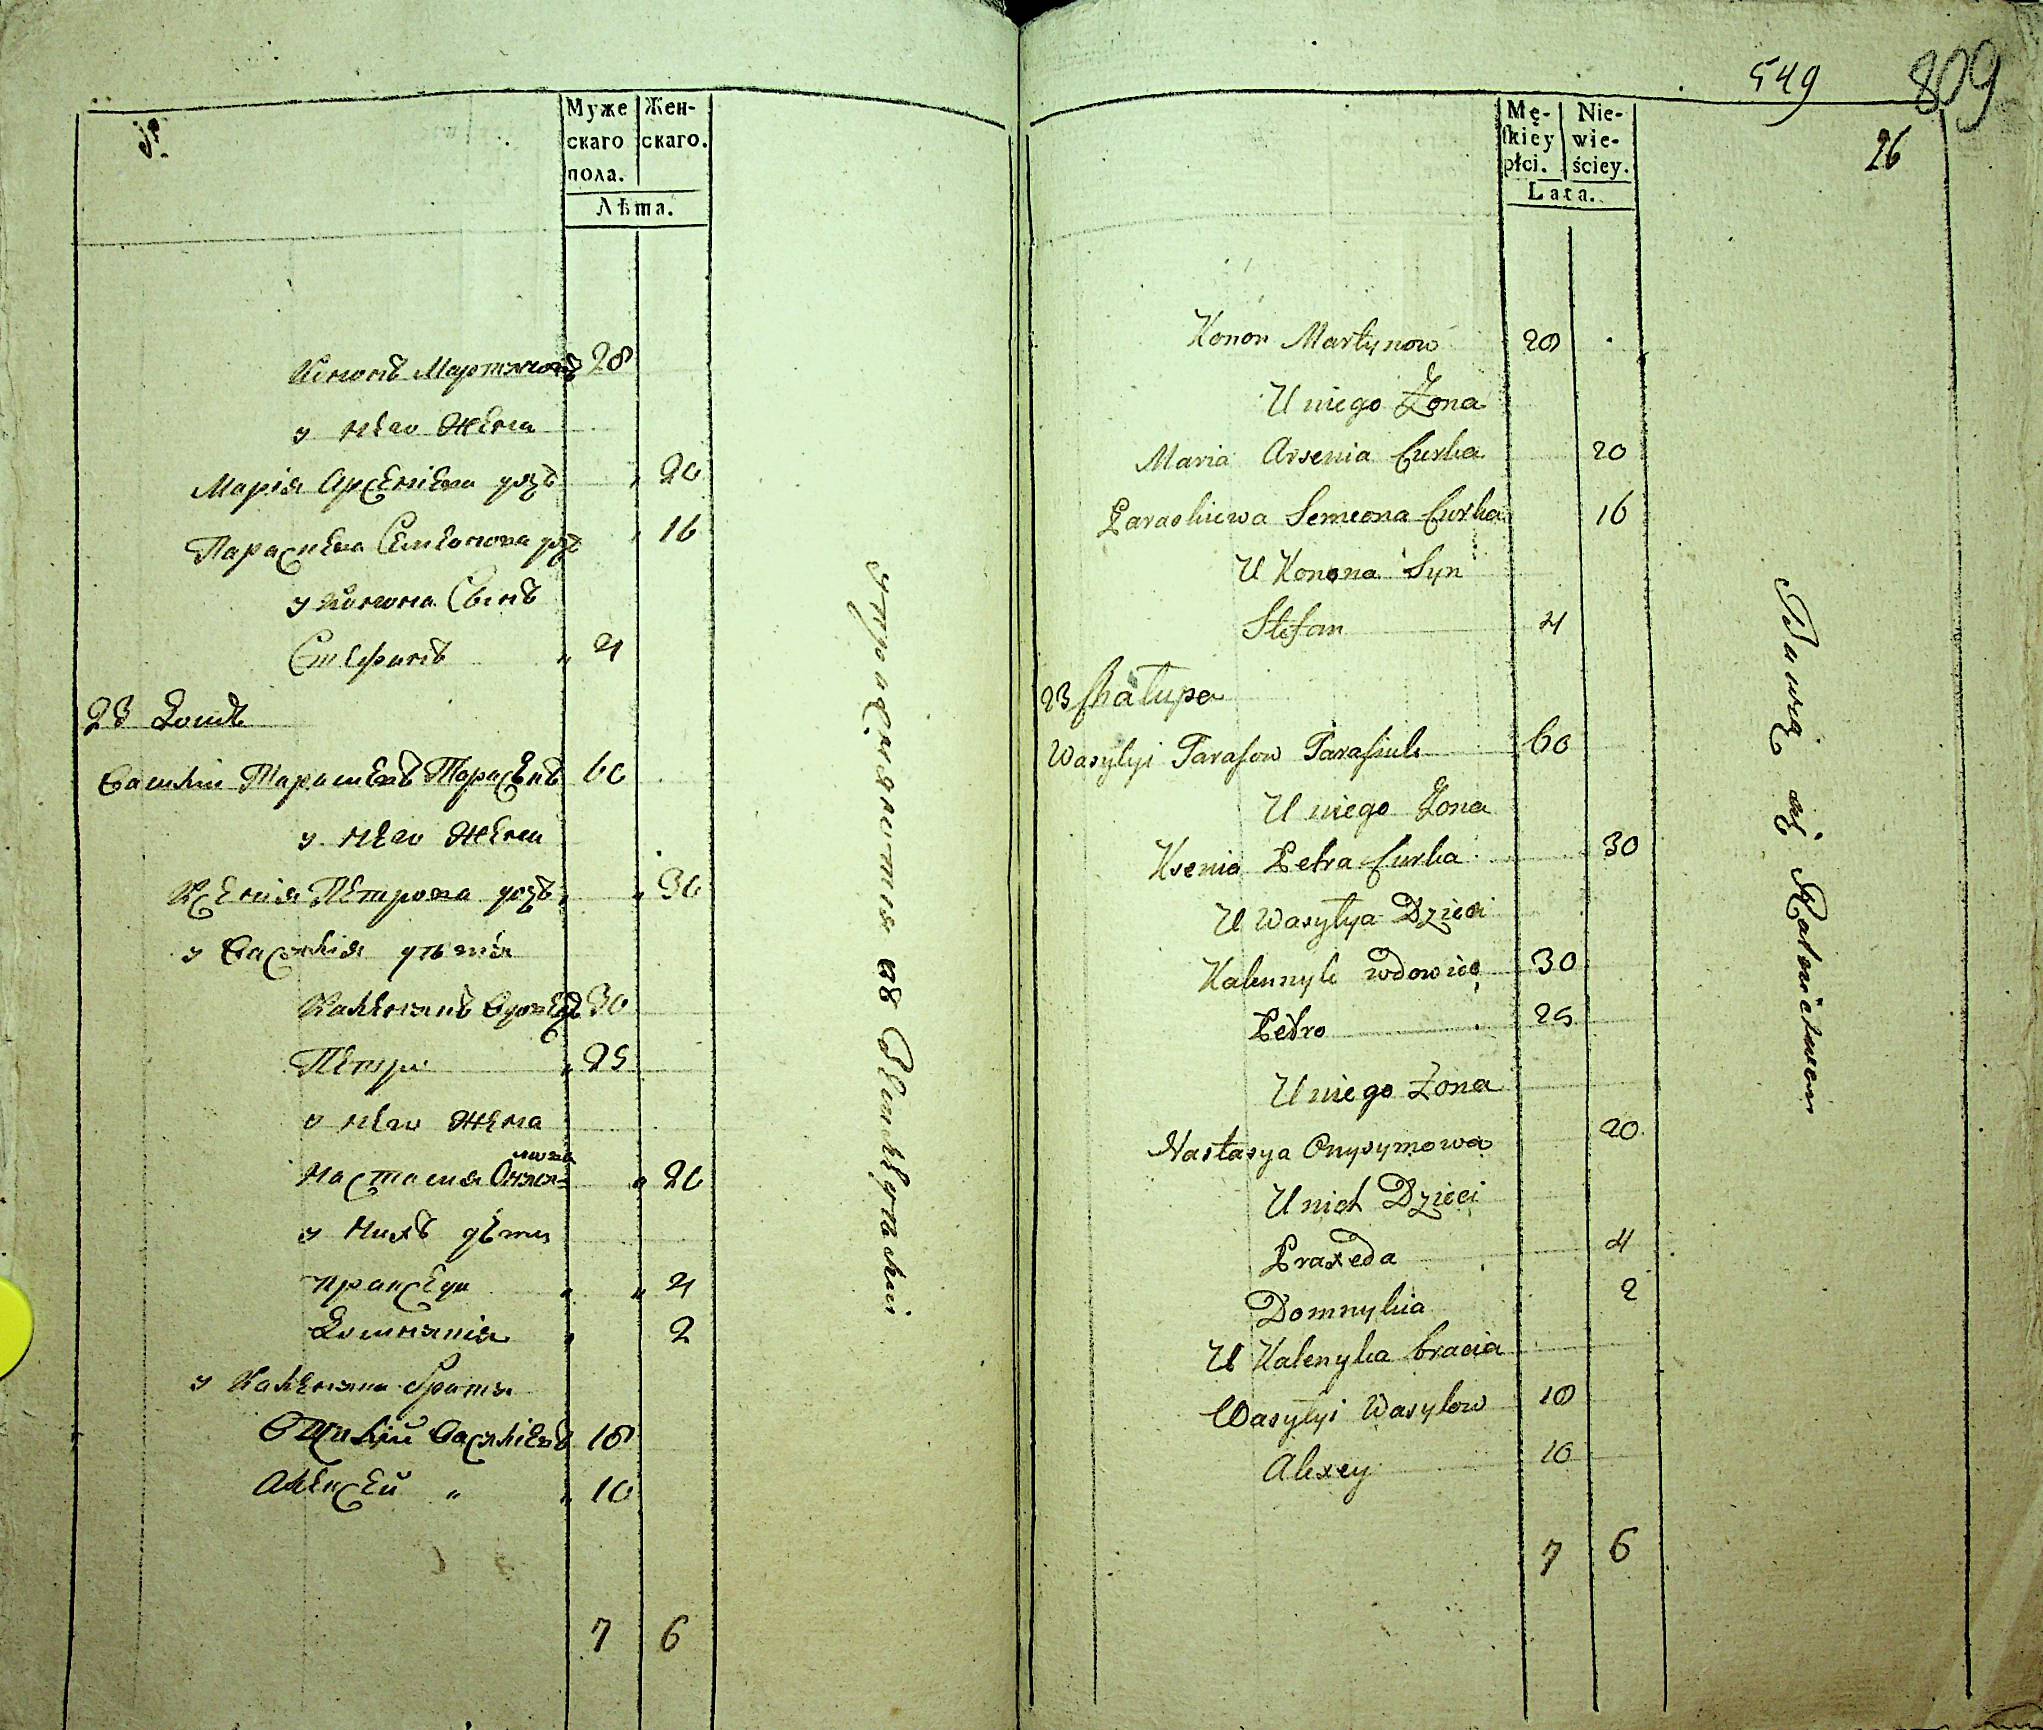 Муже
скаго
пола.
Жен-
скаго.
Лѣта.
Кононъ Мартиновъ 28
у нево жена
Марія Арсеніева дозъ " 20
Параскева Семионова дозъ " 16
у Конона Сынъ
Стефанъ " 4
23 Домъ
Василій Тарасовъ Тарасюкъ 60
у нево жена
Ксенія Петрова дозъ " 30
у Василія дѣти
Калѣникъ вдовецъ 30
Петро " 25
у нево жена
Настасия Онисимова " 20
у нихъ дѣти
Пракседа " " 4
Домникія " 2
у Каленика братя
Василій Василіевъ 18
Алексей " " 10
7 6
упражняются въ Земледѣліи
549 809
26
Mę-
skiey
płci.
Nie-
wie-
ściey.
Lata.
Konon Martynow 28
U niego Żona
Maria Arsenia Curka 20
Paraskiewa Semeona Curka 16
U Konona Syn
Stefan 4
23 Chałupa
Wasylyi Tarasow Tarasiuk 60
U niego Żona
Ksenia Petra Curka 30
U Wasylya Dzieci
Kalennyk wdowiec 30
Petro 25
U niego Żona
Nastasya Onysymowa 20
U nich Dzieci
Praxeda 4
Domnykia 2
U Kalenyka bracia
Wasylyi Wasylow 18
Alexey 10
7 6
Bawią się Rolnictwem